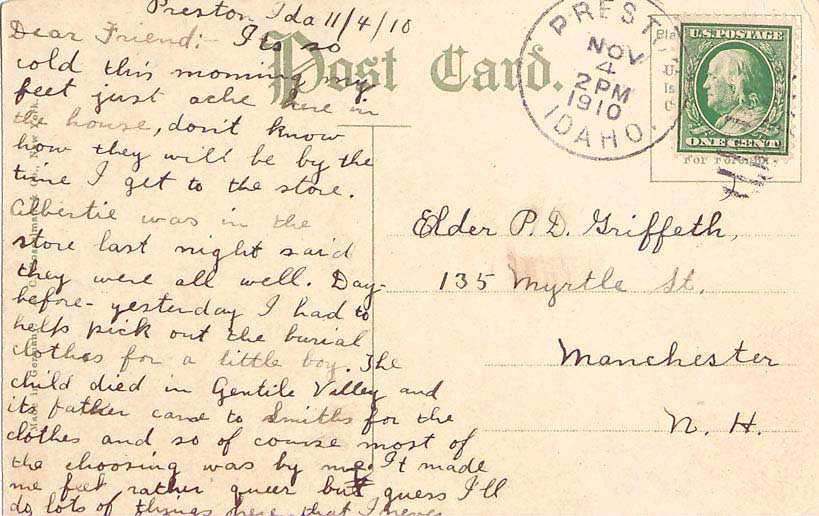 Preston Ida 11/4/10
Dear Friend:- Its so
cold this morning my
feet just ache here in
the house, don't know
how they will be by the
time I get to the store.
Albertie was in the
store last night said
they were all well. Day-
before-yesterday I had to
help pick out the burial
clothes for a little boy. The
child died in Gentile Valley and
its father came to Smiths for the
clothes and so of course most of
the choosing was by me. It made
me feel rather queer but guess I'll
do lots of things here that I never
Post Card.
PREST
NOV
4
2 PM
1910
IDAHO.
U.S. POSTAGE
ONE CENT
For Foreign
Elder P. D. Griffeth,
135 Myrtle St.
Manchester
N. H.
Made in Germany
New York.